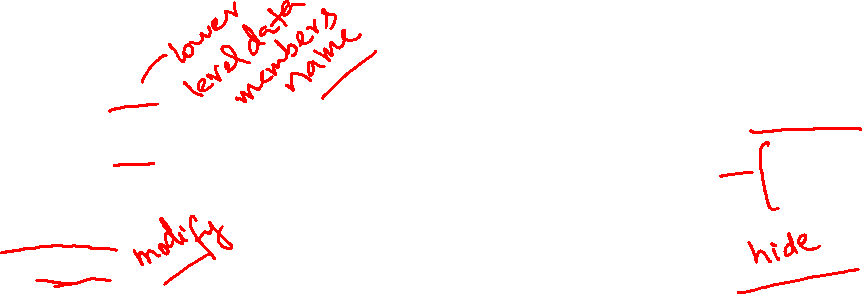 lower
level data
members
name
modify
hide